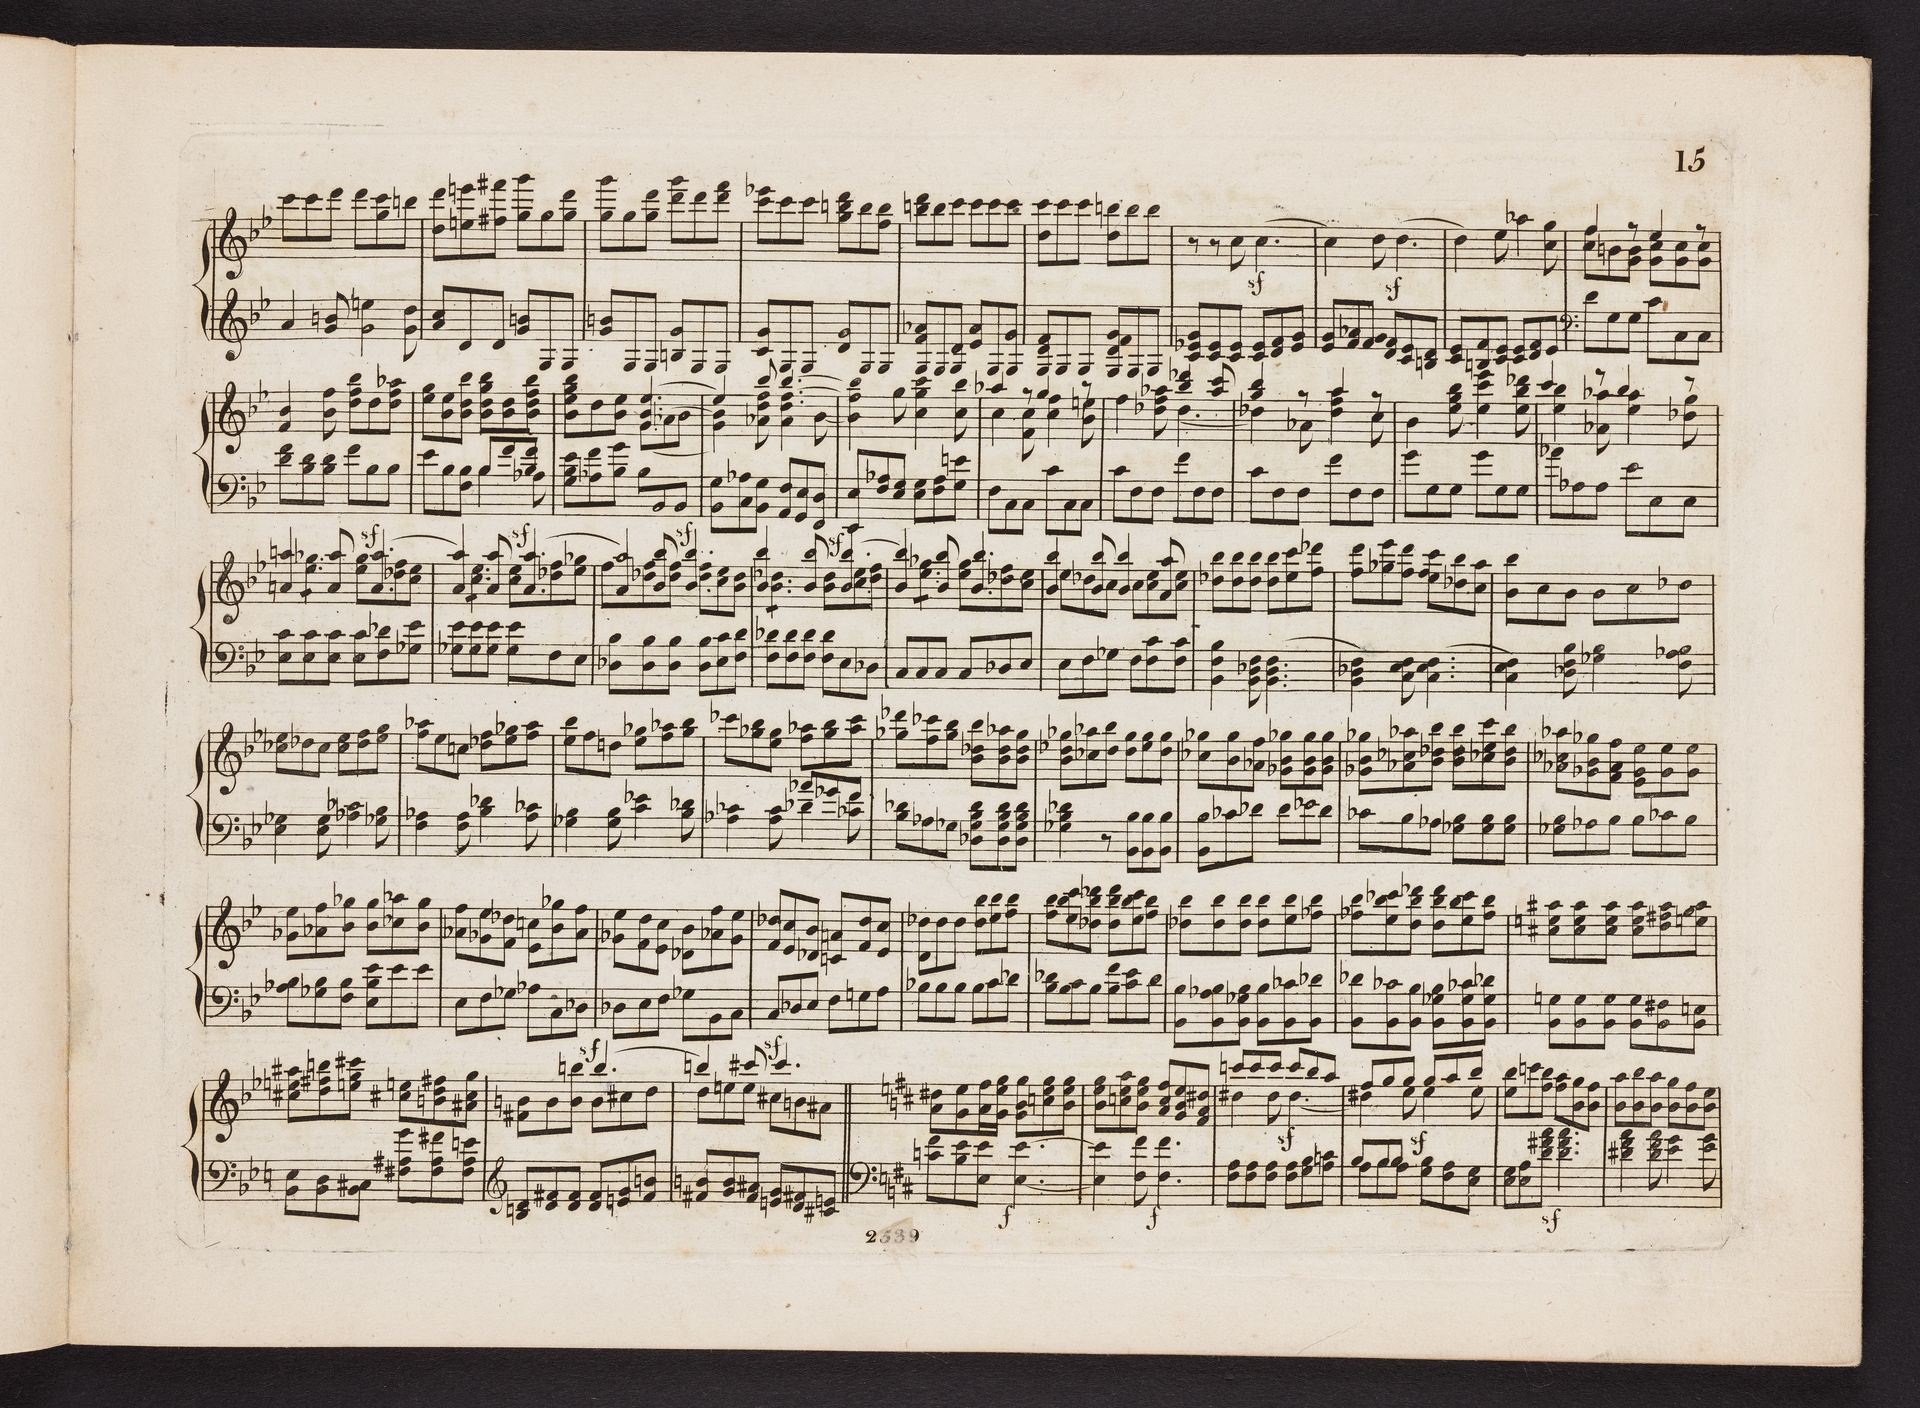 15
sf sf
sf sf sf sf
sf sf
sf sf
f f sf
2539